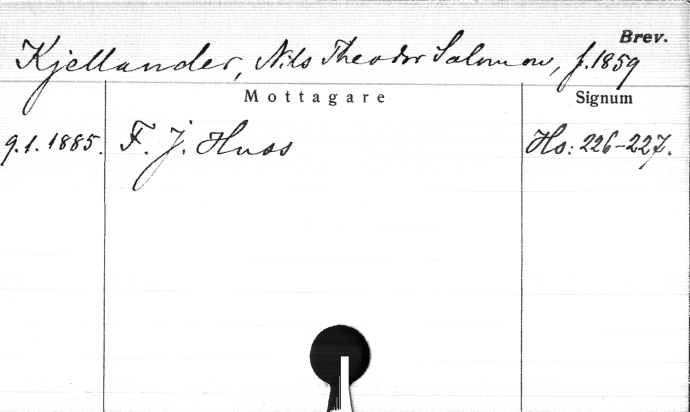 Brev.
Kjellander, Nils Theodor Salomon, f. 1859
Mottagare Signum
9.1.1885. F. J. Huss Hs: 226-227.